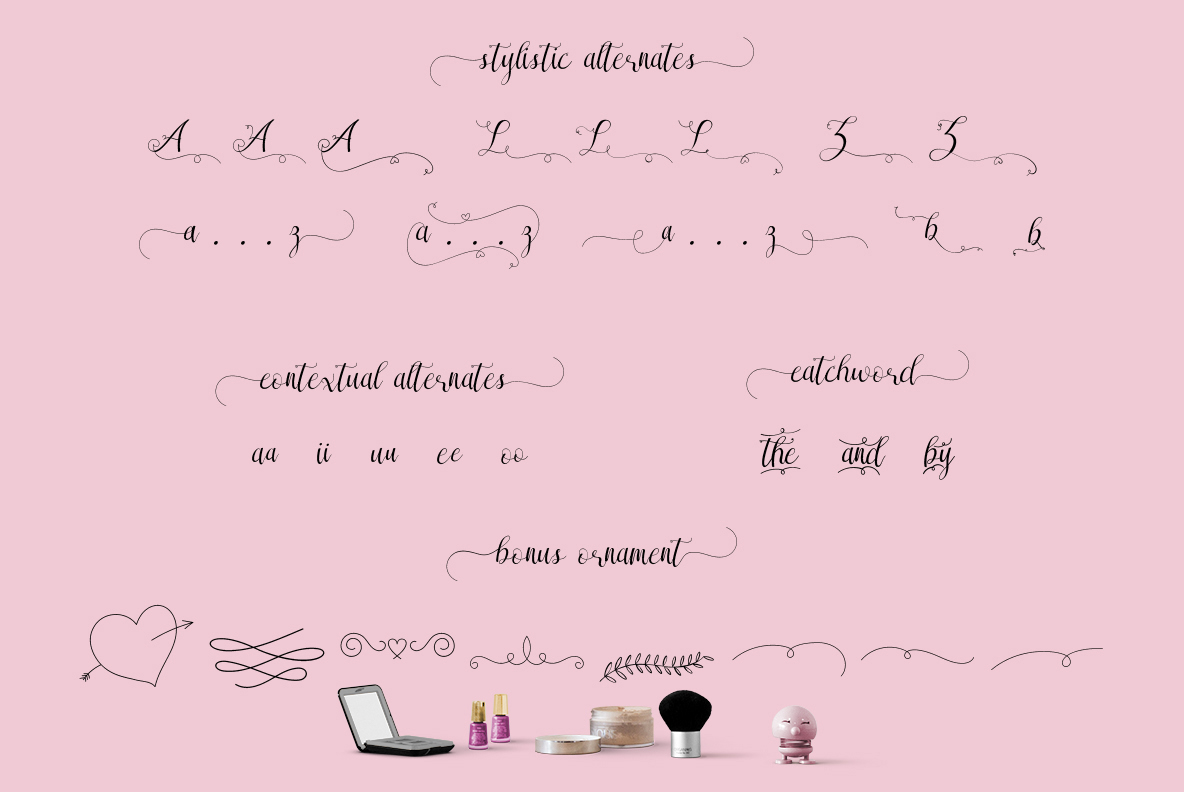 stylistic alternates
A A A L L L Z Z
a . . . z a . . . z a . . . z b b
contextual alternates
catchword
aa ii uu ee oo
the and by
bonus ornament